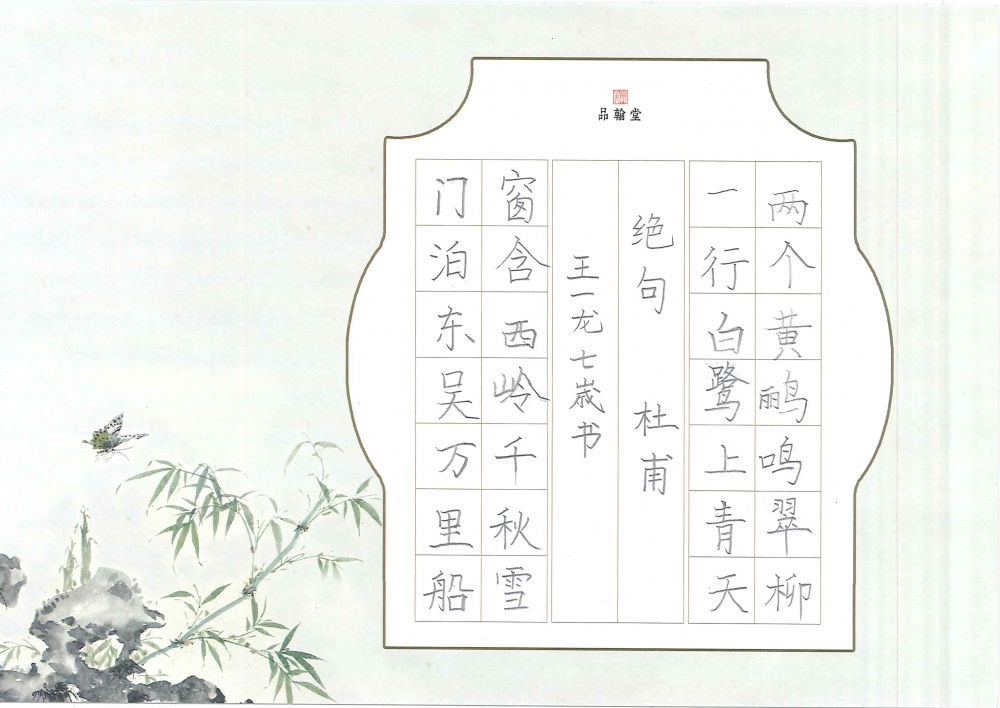 品翰堂
两个黄鹂鸣翠柳
一行白鹭上青天
绝句 杜甫
王一龙七嵗书
窗含西岭千秋雪
门泊东吴万里船